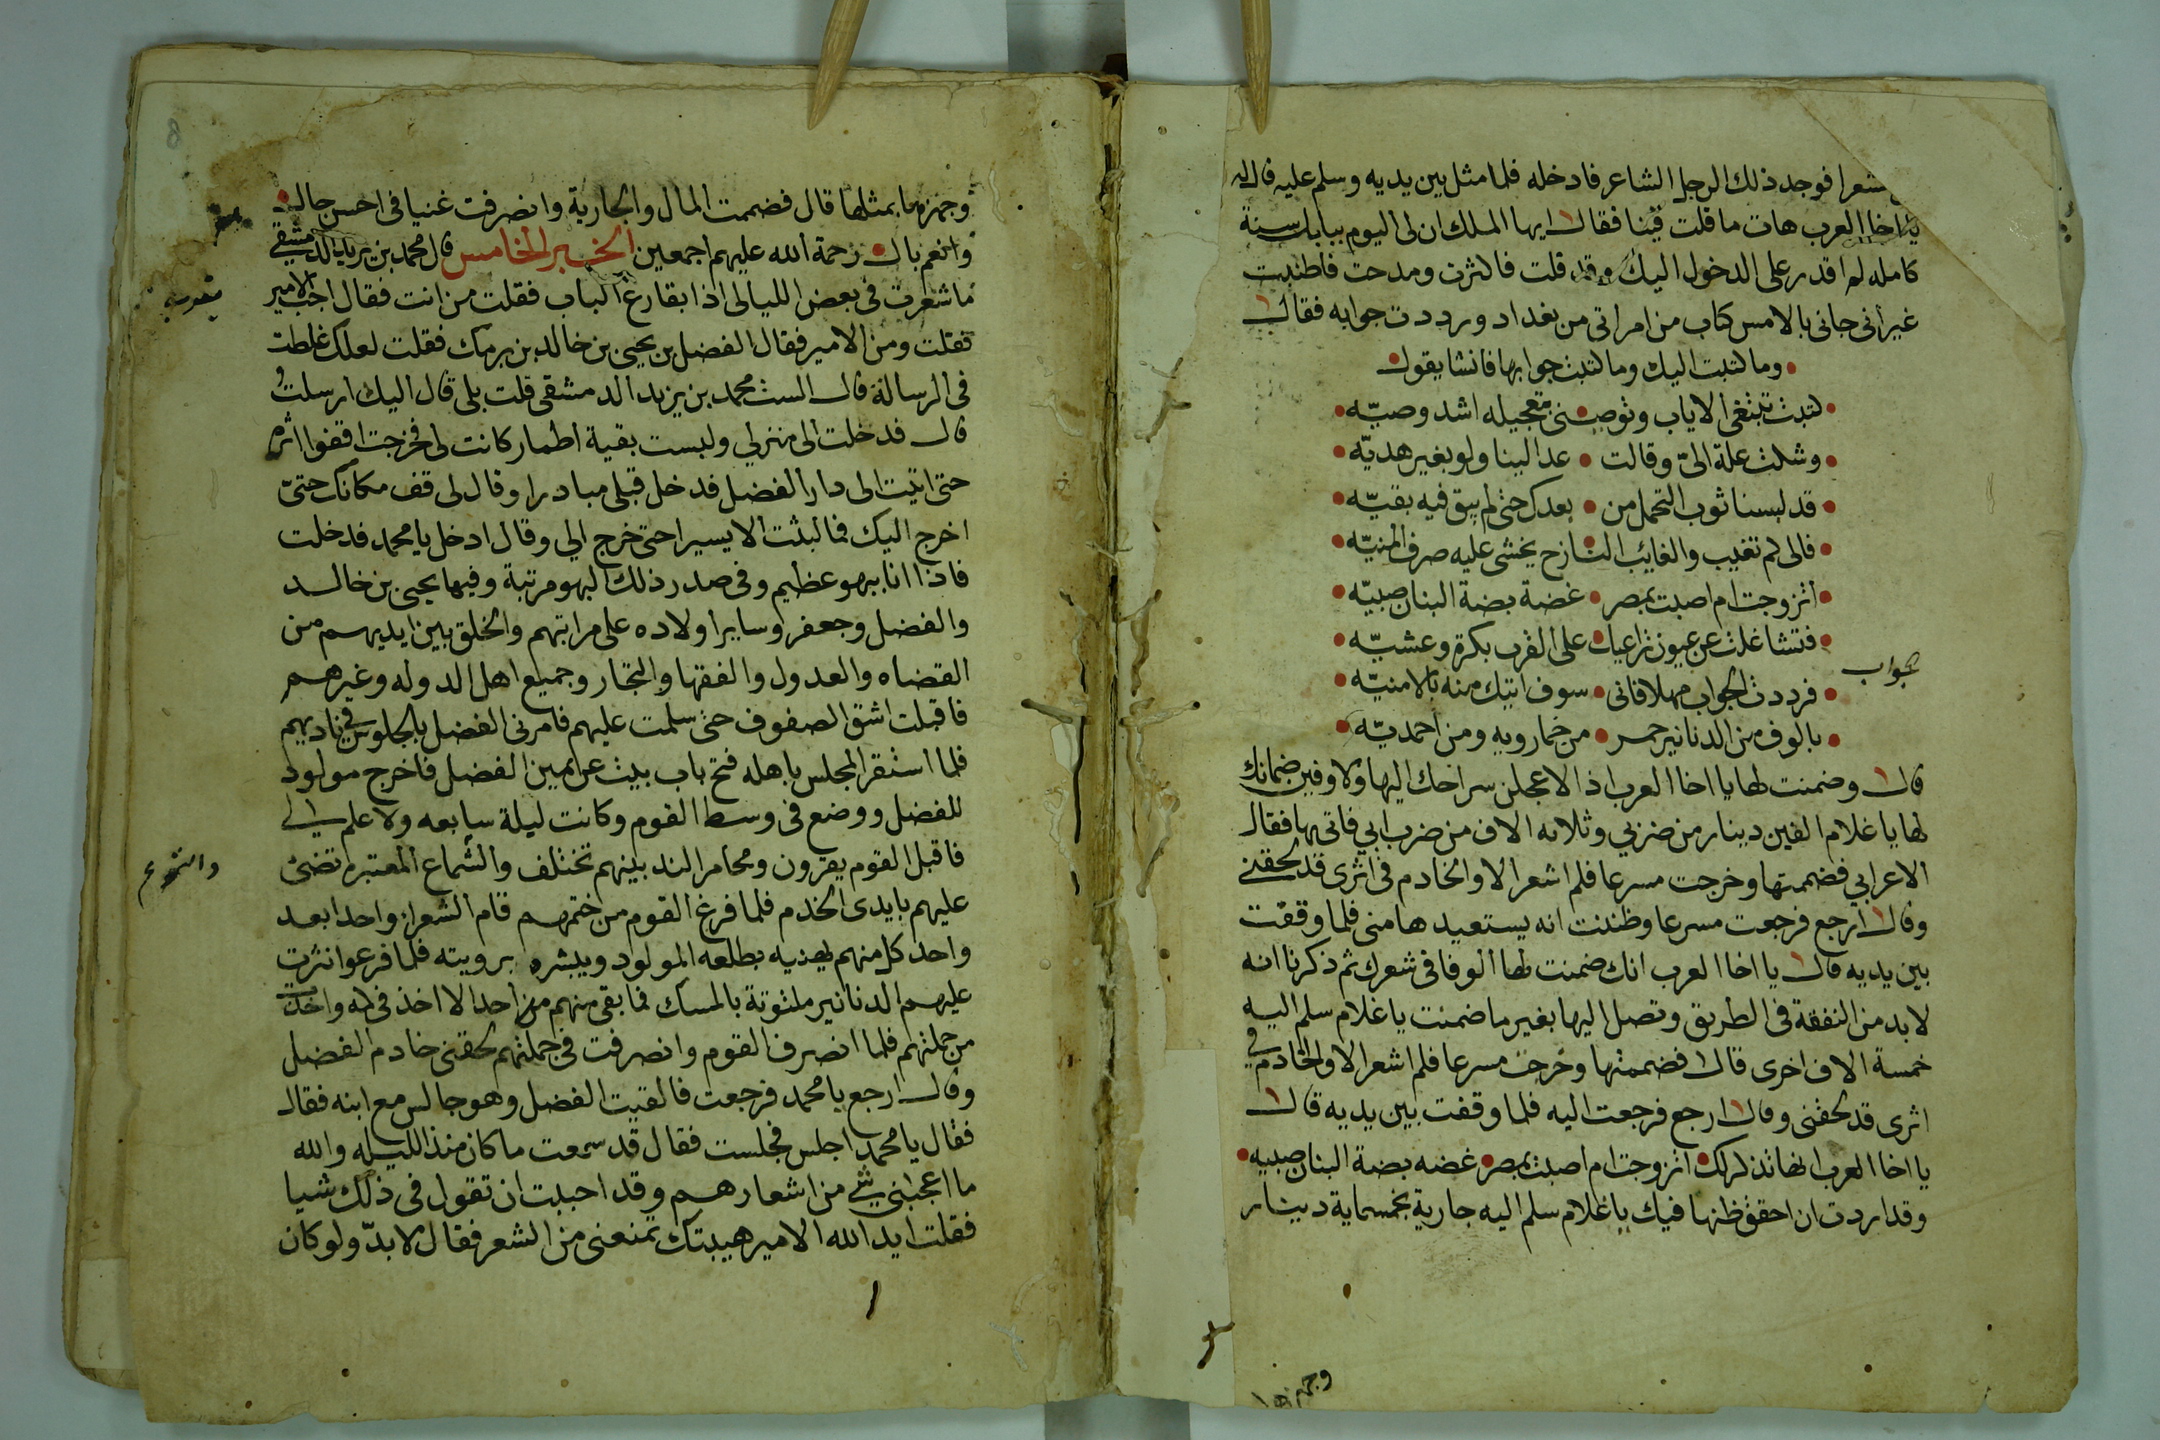 شعرا فوجد ذلك الرجل الشاعر فادخله فلما مثل بين يديه وسلم عليه قال له
يا اخا العرب هات ما قلت فينا فقال ايها الملك ان لى اليوم ببابك سنة
كامله لم اقدر على الدخول اليك وقد قلت فاكثرت ومدحت فاطنبت
غير انى جانى بالامس كتاب من امراتى من بغداد ورددت جوابه فقال
وما كتبت اليك وما كتبت جوابها فانشا يقول
كتبت تبتغى الاياب وتوصينى بتعجيله اشد وصيّه
وشكت علة الىّ وقالت عد الينا ولو بغير هديّه
قد لبسنا ثوب التحمل من بعدك حتى لم يبق فيه بقيّه
فالى لم تغيب والغائب النازح يخشى عليه صرف المنيّه
اتزوجت ام اصبت بمصر غضة بضة البنان صبيّه
فتشاغلت عن عيون تراعيك على القرب بكرة وعشيّه
جواب
فرددت الجواب مهلا فانى سوف اتيك منه بالامنيّه
بالوف من الدنانير حمر من خمارويه ومن احمديّه
قال وضمنت لها يا اخا العرب اذا لاعجلن سراحك اليها ولاوفين ضمانك
لها يا غلام الفين دينار من ضربي وثلاثه الاف من ضرب ابي فاتى بها فقال
الاعرابي فضممتها وخرجت مسرعا فلم اشعر الا والخادم فى اثرى قد لحقنى
وقال ارجع فرجعت مسرعا وظننت انه يستعيدها منى فلما وقفت
بين يديه قال يا اخا العرب انك ضمنت لها الوفا فى شعرك ثم ذكرنا انه
لابد من النفقة فى الطريق وتصل اليها بغير ما ضمنت يا غلام سلم اليه
خمسة الاف اخرى قال فضممتها وخرجت مسرعا فلم اشعر الا والخادم فى
اثرى قد لحقنى وقال ارجع فرجعت اليه فلما وقفت بين يديه قال
يا اخا العرب انها تذكر لك اتزوجت ام اصبت بمصر غضه بضة البنان صبيه
وقد اردت ان احقق ظنها فيك يا غلام سلم اليه جارية بخمسماية دينار
وجهزها
8
وجهزها بمثلها قال فضممت المال والجارية وانصرفت غنيا فى احسن حال
وانعم بال رحمة الله عليهم اجمعين الخبر الخامس قال محمد بن يزيد الدمشقى
ما شعرت فى بعض الليالى اذا بقارع الباب فقلت من انت فقال اجب الامير
فقلت ومن الامير فقال الفضل بن يحيى بن خالد بن برمك فقلت لعلك غلطت
فى الرسالة قال الست محمد بن يزيد الدمشقى قلت بلى قال اليك ارسلت
قال فدخلت الى منزلي ولبست بقية اطمار كانت لى فخرجت اقفوا اثره
حتى اتيت الى دار الفضل فدخل قبلى مبادرا وقال لى قف مكانك حتىّ
اخرج اليك فما لبثت الا يسيرا حتى خرج الي وقال ادخل يا محمد فدخلت
فاذا انا ببهو عظيم وفى صدر ذلك البهو مرتبة وفيها يحيى بن خالد
والفضل وجعفر وساير اولاده على مراتبهم والخلق بين ايديهم من
القضاه والعدول والفقها والتجار وجميع اهل الدوله وغيرهم
فاقبلت اشق الصفوف حتى سلمت عليهم فامرنى الفضل بالجلوس فى ناديهم
فلما استقر المجلس باهله فتح باب بيت عن يمين الفضل فاخرج مولود
للفضل ووضع فى وسط القوم وكانت ليلة سابعه ولا علم لى
فاقبل القوم يقرون ومجامر الند بينهم تختلف والشماع المعتبره تضئ
والشموع
عليهم بايدى الخدم فلما فرغ القوم من ختمهم قام الشعرا واحدا بعد
واحد كل منهم يهنيه بطلعه المولود ويبشره برويته فلما فرغوا نثرت
عليهم الدنانير ملتوتة بالمسك فما بقى منهم من احد الا اخذ فى كمه واخذت
من جملتهم فلما انصرف القوم وانصرفت فى جملتهم لحقنى خادم الفضل
وقال ارجع يا محمد فرجعت فالقيت الفضل وهو جالس مع ابنه فقال
فقال يا محمد اجلس فجلست فقال قد سمعت ما كان منذ الليله والله
ما اعجبنى شئ من اشعارهم وقد احببت ان تقول فى ذلك شيا
فقلت ايد الله الامير هيبتك تمنعنى من الشعر فقال لا بدّ ولو كان